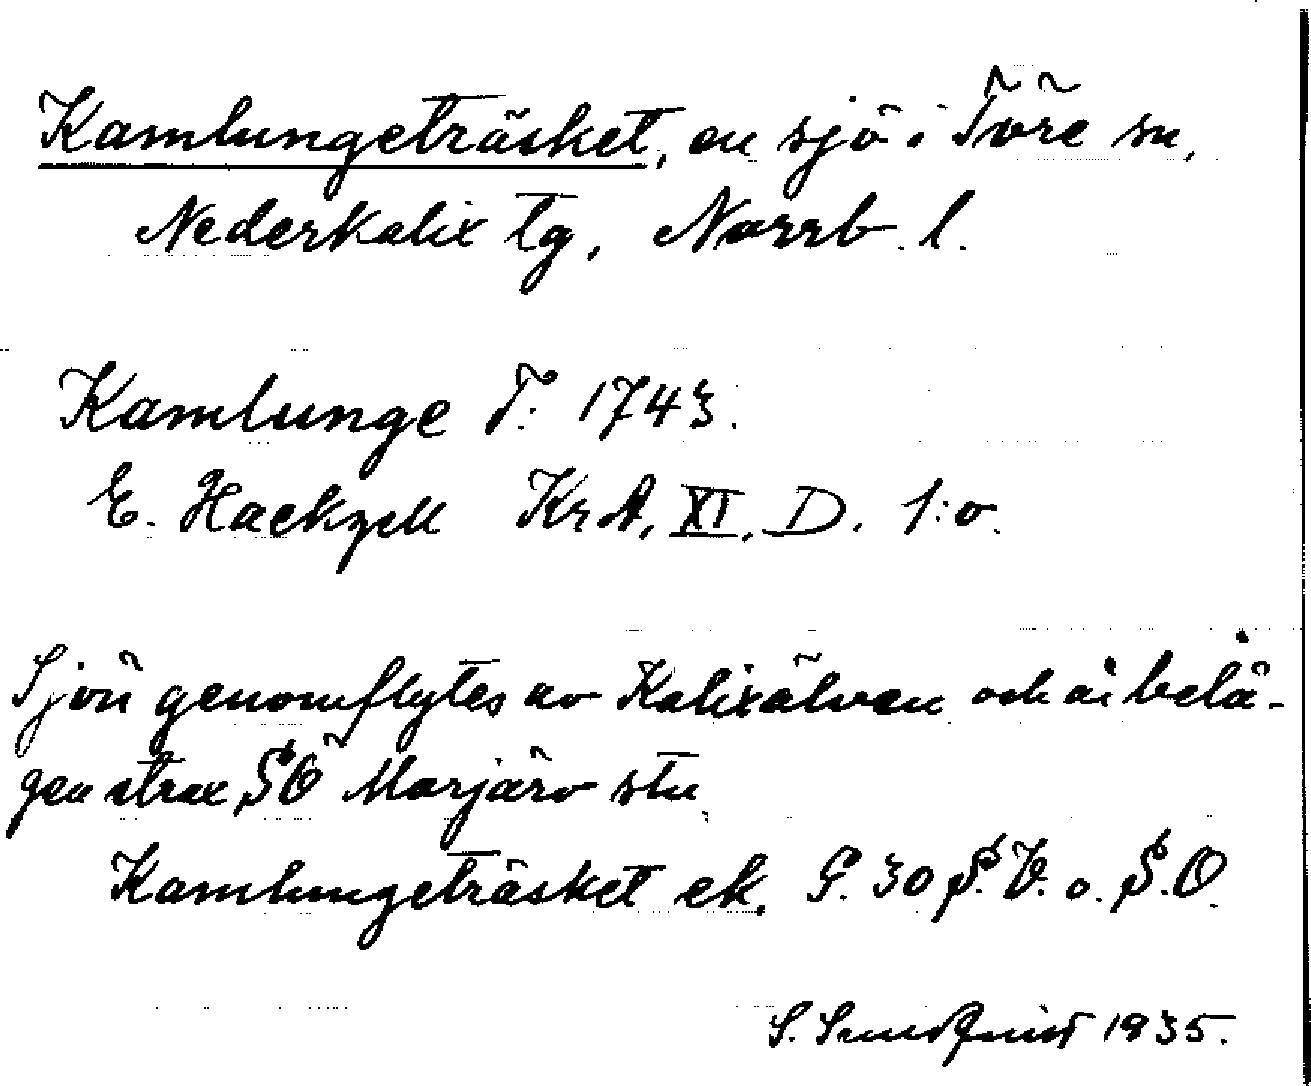 Kamlungeträsket, en sjö i Töre sn,
Nederkalix tg, Norrb. l.
Kamlunge T. 1743.
E. Hackzell KrA, XI. D. 1:o.
Sjön genomflytes av Kalixälven och är belä-
gen strax SÖ Morjärv stn
Kamlungeträsket ek. G. 30 S.V. o. S.O.
S. Sundqvist 1935.